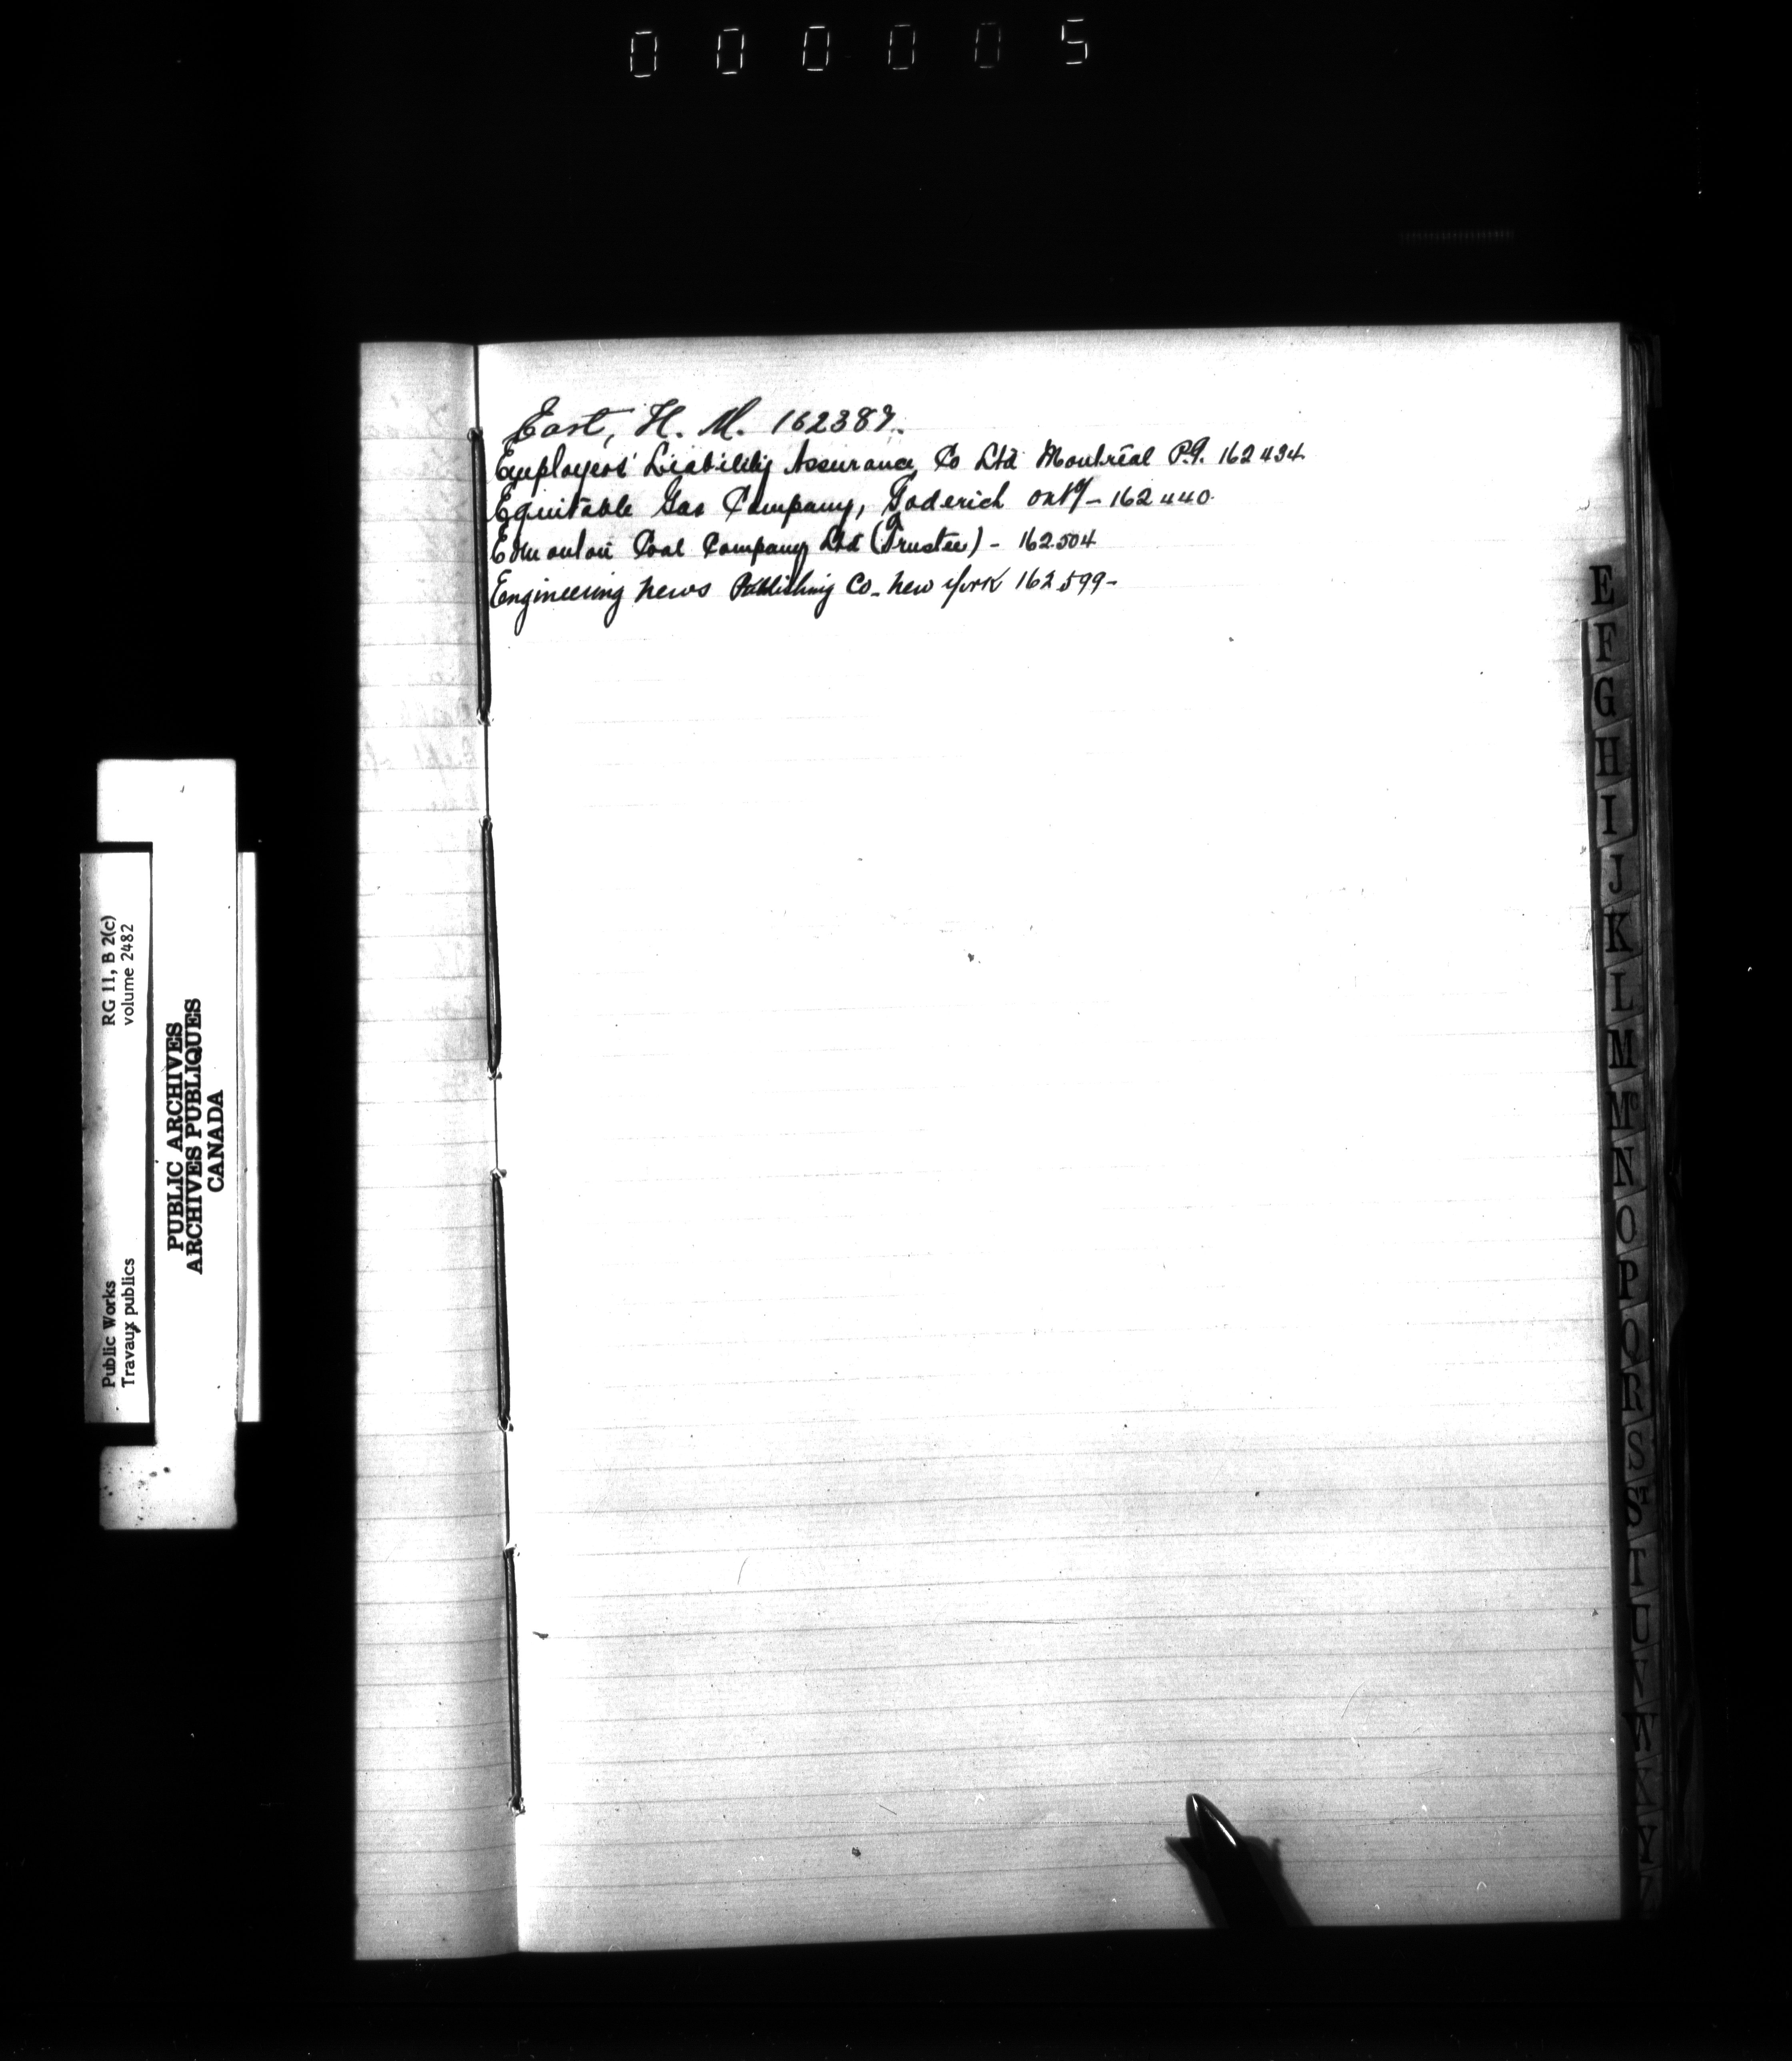 000005
East, H. M. 162387.
Employers' Liability Assurance Co Ltd Montreal P.Q. 162434
Equitable Gas Company, Goderich Onty - 162440
Edmonton Coal Company Ltd (Trustee) - 162504
Engineering News Publishing Co - New York 162599 -
E
F
G
H
I
J
K
L
M
Mc
N
O
P
Q
R
S
S
T
U
V
W
X
Y
Z
RG 11, B 2(c)
volume 2482
Public Works
Travaux publics
PUBLIC ARCHIVES
ARCHIVES PUBLIQUES
CANADA